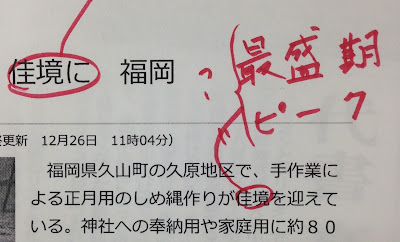 佳境に 福岡
? 最盛期
ピーク
終更新 12月26日 11時04分）
福岡県久山町の久原地区で、手作業に
よる正月用のしめ縄作りが佳境を迎えて
いる。神社への奉納用や家庭用に約８０